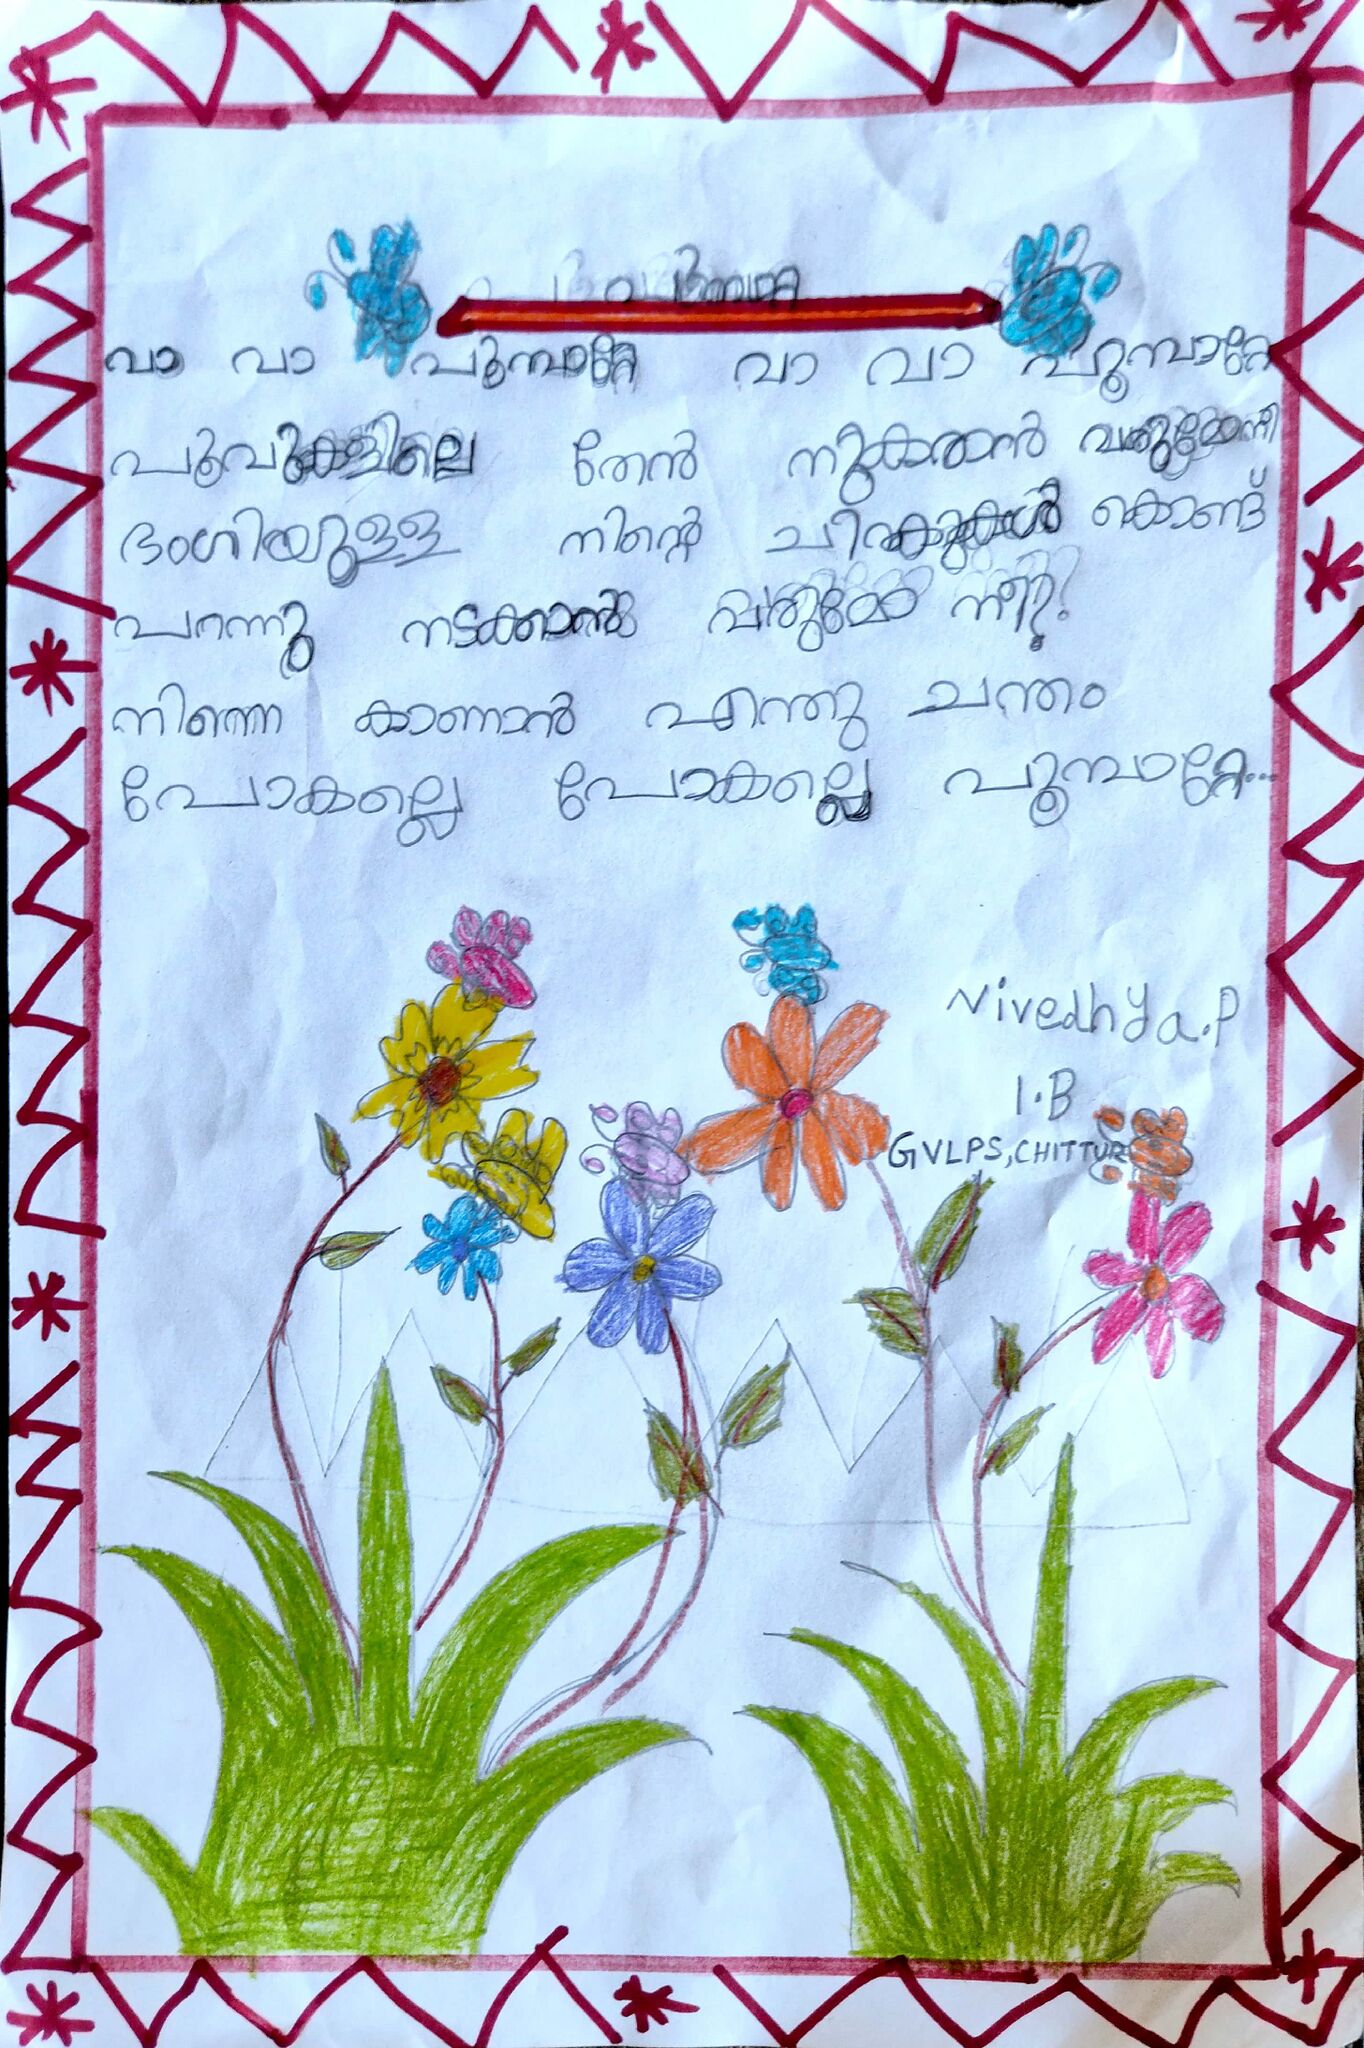 വാ വാ പൂമ്പാറ്റേ വാ വാ പൂമ്പാറ്റേ
പൂവുകളിലെ തേൻ നുകരാൻ വരുമോനീ
ഭംഗിയുള്ള നിന്റെ ചിറകുകൾ കൊണ്ട്
പറന്നു നടക്കാൻ വരുമോ നീ?
നിന്നെ കാണാൻ എന്തു ചന്തം
പോകല്ലെ പോകല്ലെ പൂമ്പാറ്റേ...
Nivedhya.P
1.B
GVLPS, CHITTUR